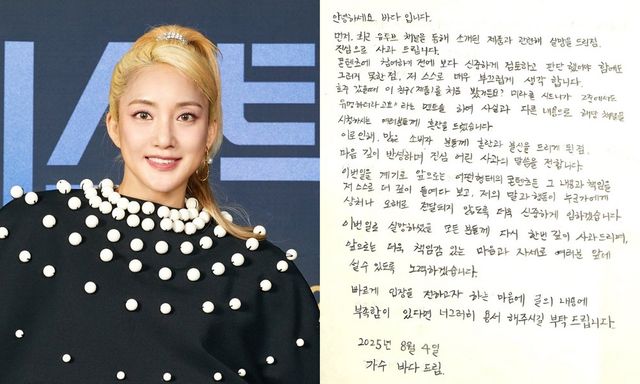 안녕하세요, 바다 입니다.
먼저, 최근 유튜브 채널을 통해 소개된 제품과 관련해 실망을 드린점,
진심으로 사과 드립니다.
콘텐츠에 참여하기 전에 보다 신중하게 검토하고 판단 했어야 함에도
그러지 못한 점, 저 스스로 매우 부끄럽게 생각 합니다.
호주 갔을때 이 친구(제품)를 처음 봤거든요? 시드니가
유명하더라고요" 라는 멘트를 하여 사실과 다른 내용으로 해당 제품을
시청하시는 여러분들께 혼란을 드렸습니다
이로 인해, 많은 소비자 분들께 혼란과 불신을 드리게 된 점,
마음 깊이 반성하며 진심 어린 사과의 말씀을 전합니다.
이번일을 계기로 앞으로는 어떤형태의 콘텐츠든 그 내용과 책임을
저 스스로 더 깊이 들여다 보고, 저의 말과 행동이 누군가에게
상처나 오해로 전달되지 않도록 더욱 신중하게 임하겠습니다
이번 일로 실망하셨을 모든 분들께 다시 한번 깊이 사과드리며,
앞으로는 더욱 책임감 있는 마음과 자세로 여러분 앞에
설 수 있도록 노력하겠습니다.
바르게 입장을 전하고자 하는 마음에 글의 내용에
부족함이 있다면 너그러이 용서 해주시길 부탁 드립니다.
2025년 8월 4일
가수 바다 드림.